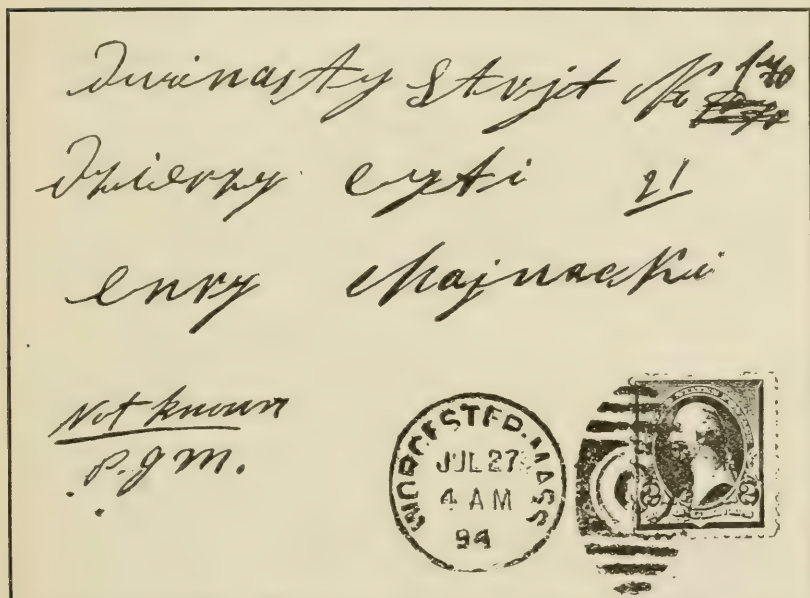 Dwinasty Strjt No 140
Dzierzy cyti 21
enry Chajnacki
Not known
P.J.M.
WORCESTER. MASS
JUL 27
4 AM
94